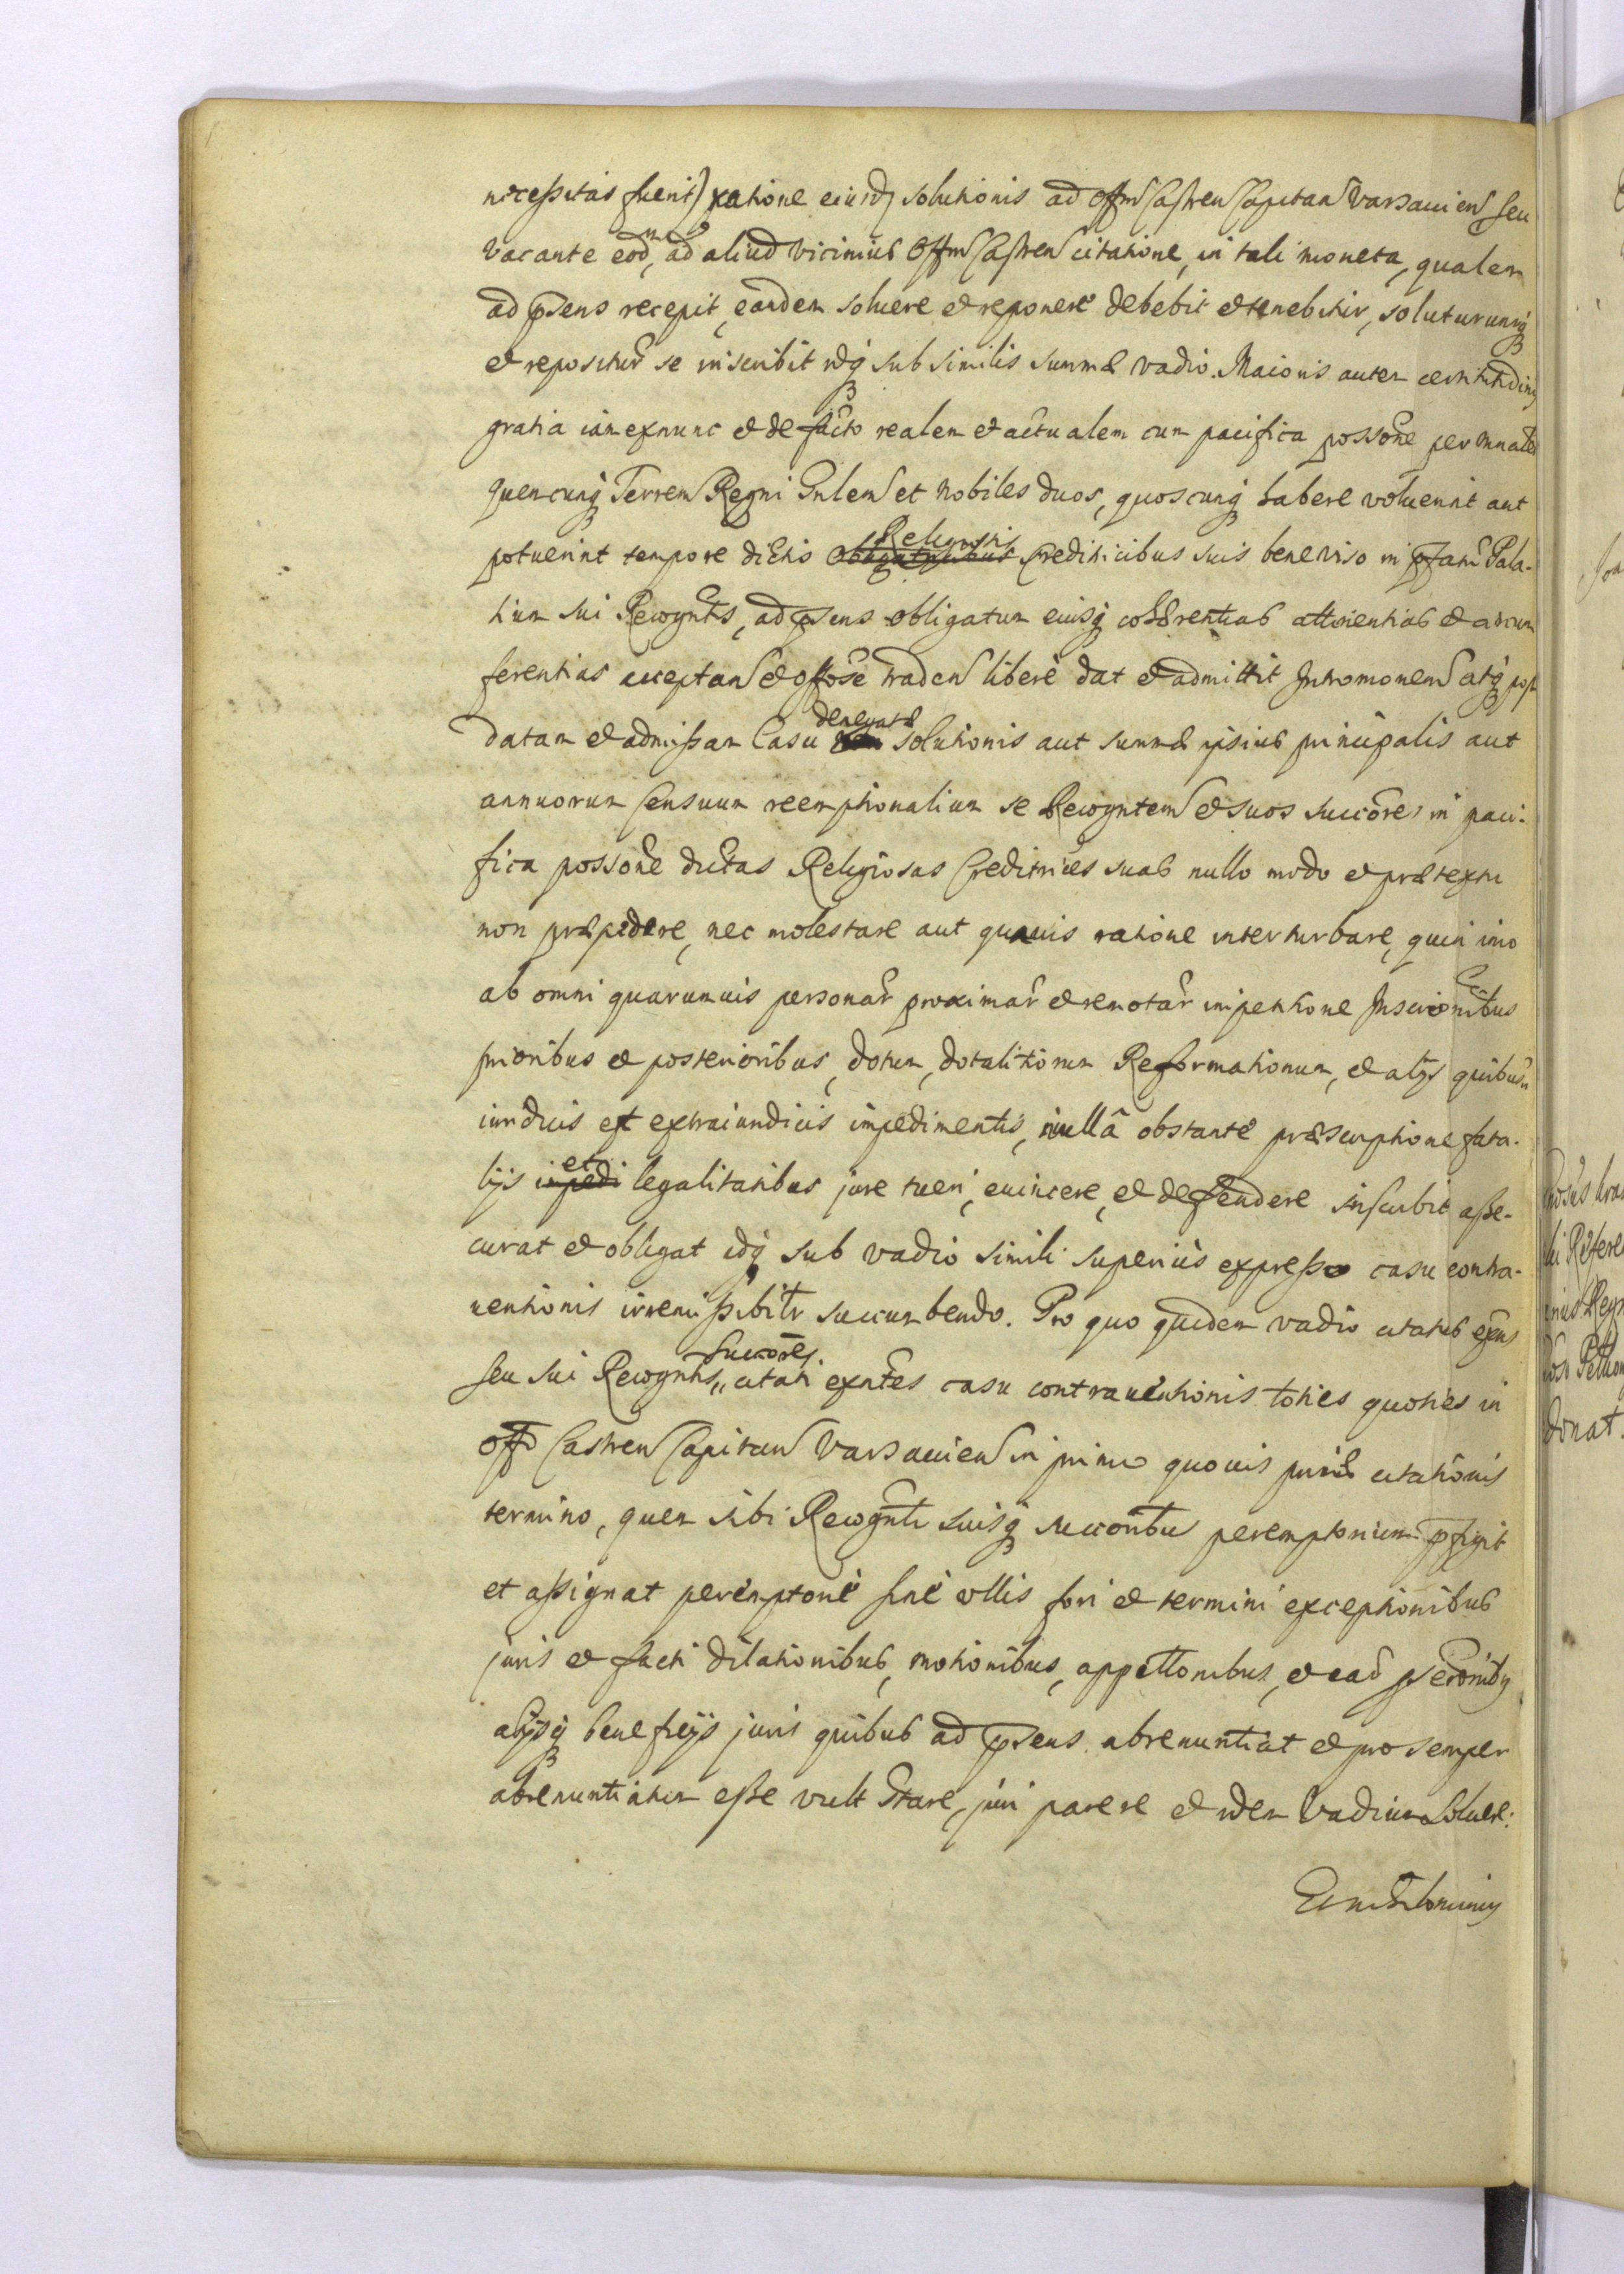 necessitas fuerit) ratione eiusdq solutionis ad Offm Castren Capitan Varsavien seu
vacante eodm, ad aliud vicinius Offm Castren citatione, in tali moneta, qualem
ad psens recepit, eandem soluere et reponere debebit et tenebitur, soluturumq
et repositur se inscribit idq sub similis summæ vadio. Maioris autem certitudinis
gratia iam exnunc et de facto realem et actualem cum pacifica possone per
quencunq Terren Regni Gnlem et Nobiles duos, quoscunq habere voluerint aut
potuerint tempore dictis Religiosis Creditricibus suis bene viso in pfatu Pala-
tium sui Recognts, ad psens obligatum eiusq cohærentias attinentias et circum
ferentias acceptan et offose traden liberè dat et admittit Intromonem atq post
datam et admissam Casu denegatæ solutionis aut summæ ipsius principalis aut
annuorum Censuum reemptionalium se Recogntem et suos succores in paci-
fica possone dictas Religiosas Creditrices suas nullo modo et prætextu
non præpedire, nec molestare aut quavis ratione interturbare, quin imo
ab omni quarumuis personar proximar et remotar impetitione Inscrionibus
prioribus et posterioribus, dotum, dotalitiorum Reformationum, et alijs quibusu
iuridicis et extraiudicis impedimentis, nullâ obstante præscriptione fata-
lijs impedi et legalitatibus jure tueri, euincere, et deffendere inscribit asse-
curat et obligat idq sub vadio simili superius expresso casu contra-
uentionis irremissibilr succumbendo. Pro quo quidem vadio citatus exns
seu sui Recognts succores, citati exntes casu contrauentionis toties quoties in
offo Castren Capitan Varsavien in primo quouis citationis
termino, quem sibi Recognti suisq succoribus peremptorium pfigit
et assignat peremptoriè sinè ullis fori et termini exceptionibus
juris et facti dilationibus, motionibus, appellonibus, et ear
alijsq beneficijs juris quibus ad psens abrenuntiat et pro semper
abrenuntiatum esse vult Stare, juri parere et idem Vadium Soluere: